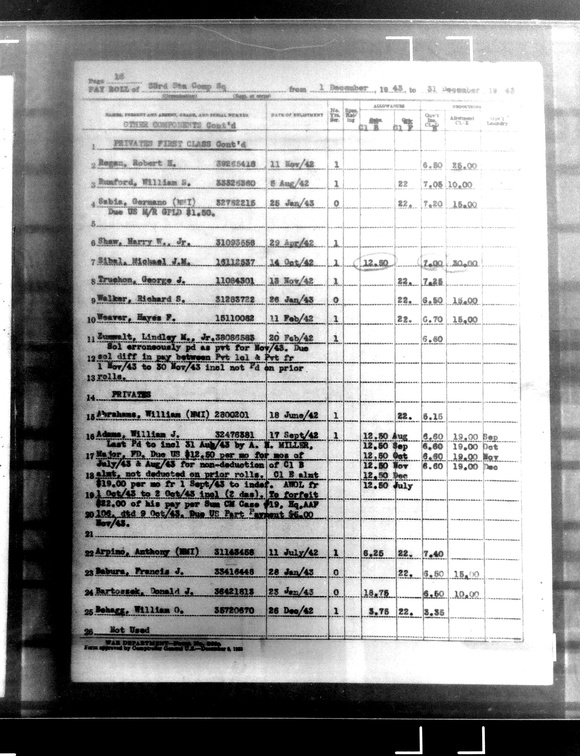 Page 16
PAY ROLL OF 33rd Sta Comp Sq from 1 December, 1943, to 31 December 1943
(Organization)
ALLOWANCES
NAMES, PRESENT AND ABSENT, GRADE, AND SERIAL NUMBER DATE OF ENLISTMENT
OTHER COMPONENTS Cont'd Cl B Cl F
1 PRIVATES FIRST CLASS Cont'd
2 Regan, Robert E. 39265418 11 Nov/42 1 6.50 25.00
3 Rumford, William S. 33326360 8 Aug/42 1 22 7.05 10.00
4 Sabia, Germano (NMI) 32782215 25 Jan/43 0 22. 7.20 15.00
Due US M/R GPLD $1.50.
5
6 Shaw, Harry W., Jr. 31093556 29 Apr/42 1
7 Sibal, Michael J.M. 16112537 14 Oct/42 1 12.50 7.00 30.00
8 Truchon, George J. 11084301 13 Nov/42 1 22. 7.25
9 Walker, Richard S. 31283722 26 Jan/43 0 22. 6.50 15.00
10 Weaver, Hayes F. 15110082 11 Feb/42 1 22. 6.70 15.00
11 Zumwalt, Lindley M., Jr. 38086583 20 Feb/42 1 6.60
Sol erroneously pd as pvt for Nov/43. Due
12 sol diff in pay between Pvt 1cl & Pvt fr
1 Nov/43 to 30 Nov/43 incl not Pd on prior
13 rolls.
14 PRIVATES
15 Abrahams, William (NMI) 2800201 18 June/42 1 22. 6.15
16 Adams, William J. 32476381 17 Sept/42 1 12.50 Aug 6.60 19.00 Sep
Last Pd to incl 31 Aug/43 by A. N. MILLER, 12.50 Sep 6.60 19.00 Oct
17 Major, FD. Due US $12.50 per mo for mos of 12.50 Oct 6.60 19.00 Nov
July/43 & Aug/43 for non-deduction of Cl B 12.50 Nov 6.60 19.00 Dec
18 almt, not deducted on prior rolls. Cl E almt 12.50 Dec
$19.00 per mo fr 1 Sept/43 to indef. AWOL fr 12.50 July
19 1 Oct/43 to 2 Oct/43 incl (2 das). To forfeit
$22.00 of his pay per Sum CM Case #19, Hq,AAF
20 106, dtd 9 Oct/43. Due US Part Payment $5.00
Nov/43.
21
22 Arpino, Anthony (NMI) 31143456 11 July/42 1 6.25 22. 7.40
23 Babura, Francis J. 33416446 28 Jan/43 0 22. 6.50 15.00
24 Bartoszek, Donald J. 36421813 23 Jan/43 0 18.75 6.50 10.00
25 Behagg, William O. 35720670 26 Dec/42 1 3.75 22. 3.35
26 Not Used
WAR DEPARTMENT
Form approved by Comptroller General U.S.